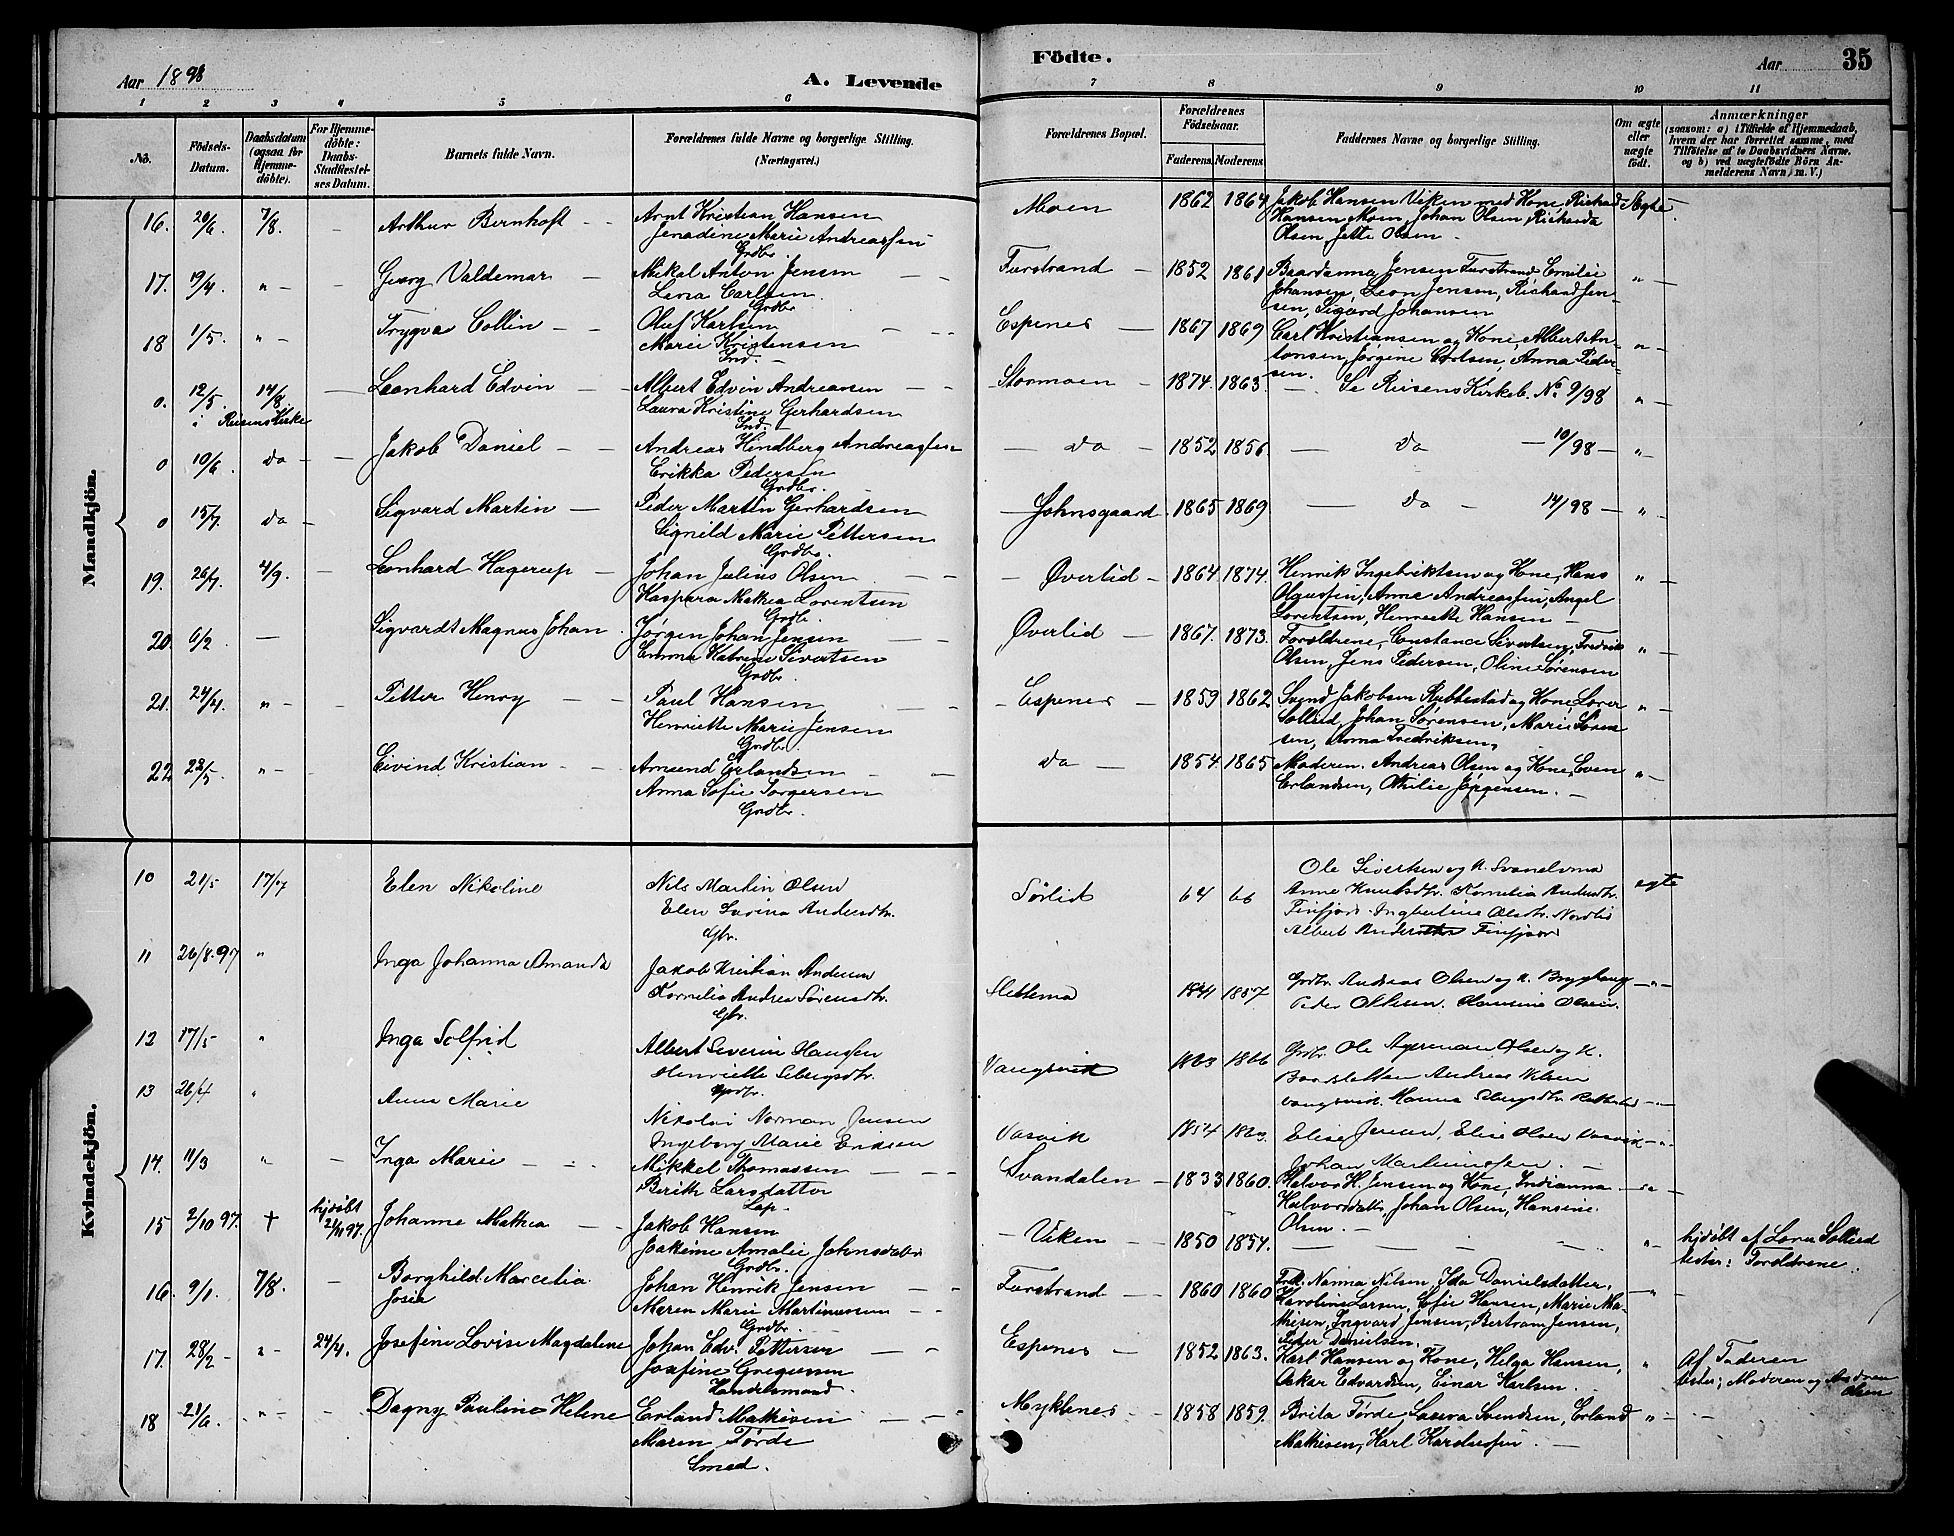 Aar 1898
A. Levende
Födte.
Aar
35
1 2 3 4 5 6 7 8 9 10 11
No.
Födsels-Datum.
Daabsdatum (ogsaa for Hjemme-döbte).
For Hjemme-döbte: Daabs-Stadfæstel-ses Datum.
Barnets fulde Navn.
Forældrenes fulde Navne og borgerlige Stilling. (Næringsvei.)
Forældrenes Bopæl.
Forældrenes Födselsaar.
Faderens. Moderens.
Faddernes Navne og borgerlige Stilling.
Om ægte eller uægte født.
Anmærkninger
(saasom: a) i Tilfælde af Hjemmedaab, hvem der har forrettet samme, med Tilföielse af to Daabsvidners Navne. og b) ved uægtefödte Börn An-melderens Navn, m. V.)
Mandkjön.
16. 20/6 7/8. – Arthur Bernhoft – Arnt Kristian Hansen
Jenadine Marie Andreassen
Grdbr.
Moen 1862 1864 Jakob Hansen Viken med Kone, Richard Ægte
Hansen Moen, Johan Olsen, Richarda
Olsen, Jette Olsen –
17. 19/4 " – Georg Valdemar – Mikal Anton Jensen
Lena Carlsen
Grdbr
Furstrand – 1852 1861 Baardanna Jensen Furstrand Emilie "
Johansen, Leon Jensen, Richard Jen-
sen, Sigurd Johansen
18 1/5. " – Trygve Collin – Oluf Karlsen
Marie Kristensen
Ind. –
Espenes – 1867 1869 Carl Kristiansen og Kone, Albert An- "
tonsen, Jørgine Carlsen, Anna Peder-
sen.
0. 12/5. 14/8. – Leonhard Edvin – Albert Edvin Andreasen
" Reisens Kirke
Laura Kristine Gerhardsen
Ind. –
Stormoen – 1874. 1863. – Se Reisens Kirkeb. No. 9/98 "
0 10/6. do – Jakob Daniel – Andreas Hindberg Andreassen
Erikka Pedersen
Grdbr.
– do – 1852 1856. – do – 10/98 – "
0 15/7. do – Sigvard Martin – Peder Martin Gerhardsen
Signild Marie Pettersen
Grdbr.
Johnsgaard 1865 1869 – do – 14/98 – "
19. 26/7. 4/9. – Leonhard Hagerup – Johan Julius Olsen
Kaspara Mathea Lorentsen
Grdb.
– Øverlid – 1864 1874. Henrik Ingebriktsen og Kone, Hans "
Olaussen, Anne Andreassen, Angel
Lorentsen, Henriette Hansen –
20. 6/2 – Sigvardt Magnus Johan. Jørgen Johan Jensen
Emma Katrine Sivertsen
Grdbr.
Øverlid – 1867. 1873. Forældrene, Constance Sivertsen, Fredrik "
Olsen, Jens Pedersen, Oline Sørensen
21. 24/4. " – Petter Henry – Paul Hansen
Henriette Marie Jensen
Grdbr.
– Espenes – 1859 1862 Svend Jakobsen Rubbestad og Kone, Lorer "
Sollied, Johan Sørensen, Marie Søren-
sen, Anna Fredriksen,
22 22/5. " – Eivind Kristian – Amund Erlandsen
Anna Sofie Torgersen
Grdbr.
do – 1854. 1865 Moderen. Andreas Olsen og Kone, Even "
Erlandsen, Othilie Jørgensen. –
Kvindekjön.
10 21/5 17/07 Elen Nikoline Nils Martin Olsen
Elen Serina Andersdtr.
Gbr.
Sørlid 64 66 Ole Sivertsen og K. Svanelvmo egte
Anne Knutsdtr. Kornelia Andersdtr.
Finfjord. Ingbertine Olsdtr. Nordlis
Albert Anders Finfjord
11 26/8.97 " Inga Johanna Amanda Jakob Kristian Andersen
Kornelia Andrea Sørensdtr.
Gbr.
Slettmo 1857 Grdbr. Andreas Olsen og K. Bryghaug "
Peder Olsen. Hansine Olsen.
12 17/5 " Inga Solfrid Albert Severin Hansen
Henriette
Grdbr.
Vangsvik 1863 1866 Grdbr. Ole Olsen og K.
Andreas Nilsen
Vangsvik. Hanna
13 26/4 " Anna Marie Nikolai Norman Jensen
Ingeborg Marie Eriksen
Vasvik 1854 1863. Elise Jensen, Elise Olsen Vasvik "
Johan Martinussen. –
14. 11/3 " – Inga Marie – Mikkel Thomassen
Berith Larsdatter
Lap –
Svandalen – 1833 1860. Halvor H. Jensen og Kone, Indianna "
Halvorsdatter, Johan Olsen, Hansine
Olsen. –
15 2/10 97. † hjdøbt 21/11 97. Johanne Mathea – Jakob Hansen
Joakime Amalie Johnsdatter
Grdbr.
– Viken – 1850 1854. – " hjdøbt af Lorer Sollied
tester: Forældrene.
16. 9/1. 7/8. – Borghild Marcelia
Josia
Johan Henrik Jensen
Maren Marie Martinussen
Grdbr.
Furstrand – 1860 1860 Frk. Nanna Nilsen, Ida Danielsdatter, "
Karoline Larsen, Sofie Hansen, Marie Ma-
thisen, Ingvard Jensen, Bertram Jensen,
Peder Danielsen.
17. 28/2 – " – 24/4. Josefine Lovise Magdalene Johan Edv. Pettersen
Josefine Gregersen
Handelsmand.
Espenes – 1852 1863. Karl Hansen og Kone, Helga Hansen, " Af Faderen
Oskar Edvardsen, Einar Karlsen. – tester; Moderen og Andrea
Olsen
18 21/6. " – Dagny Pauline Helene Erland Mathisen
Maren Førde
Smed.
Myklenes – 1858 1859. Brita Førde, Lasera Svendsen, Erland "
Mathisen, Karl Karolussen –